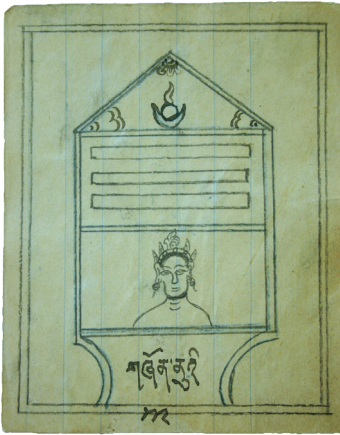 གཞོན་ནུའི